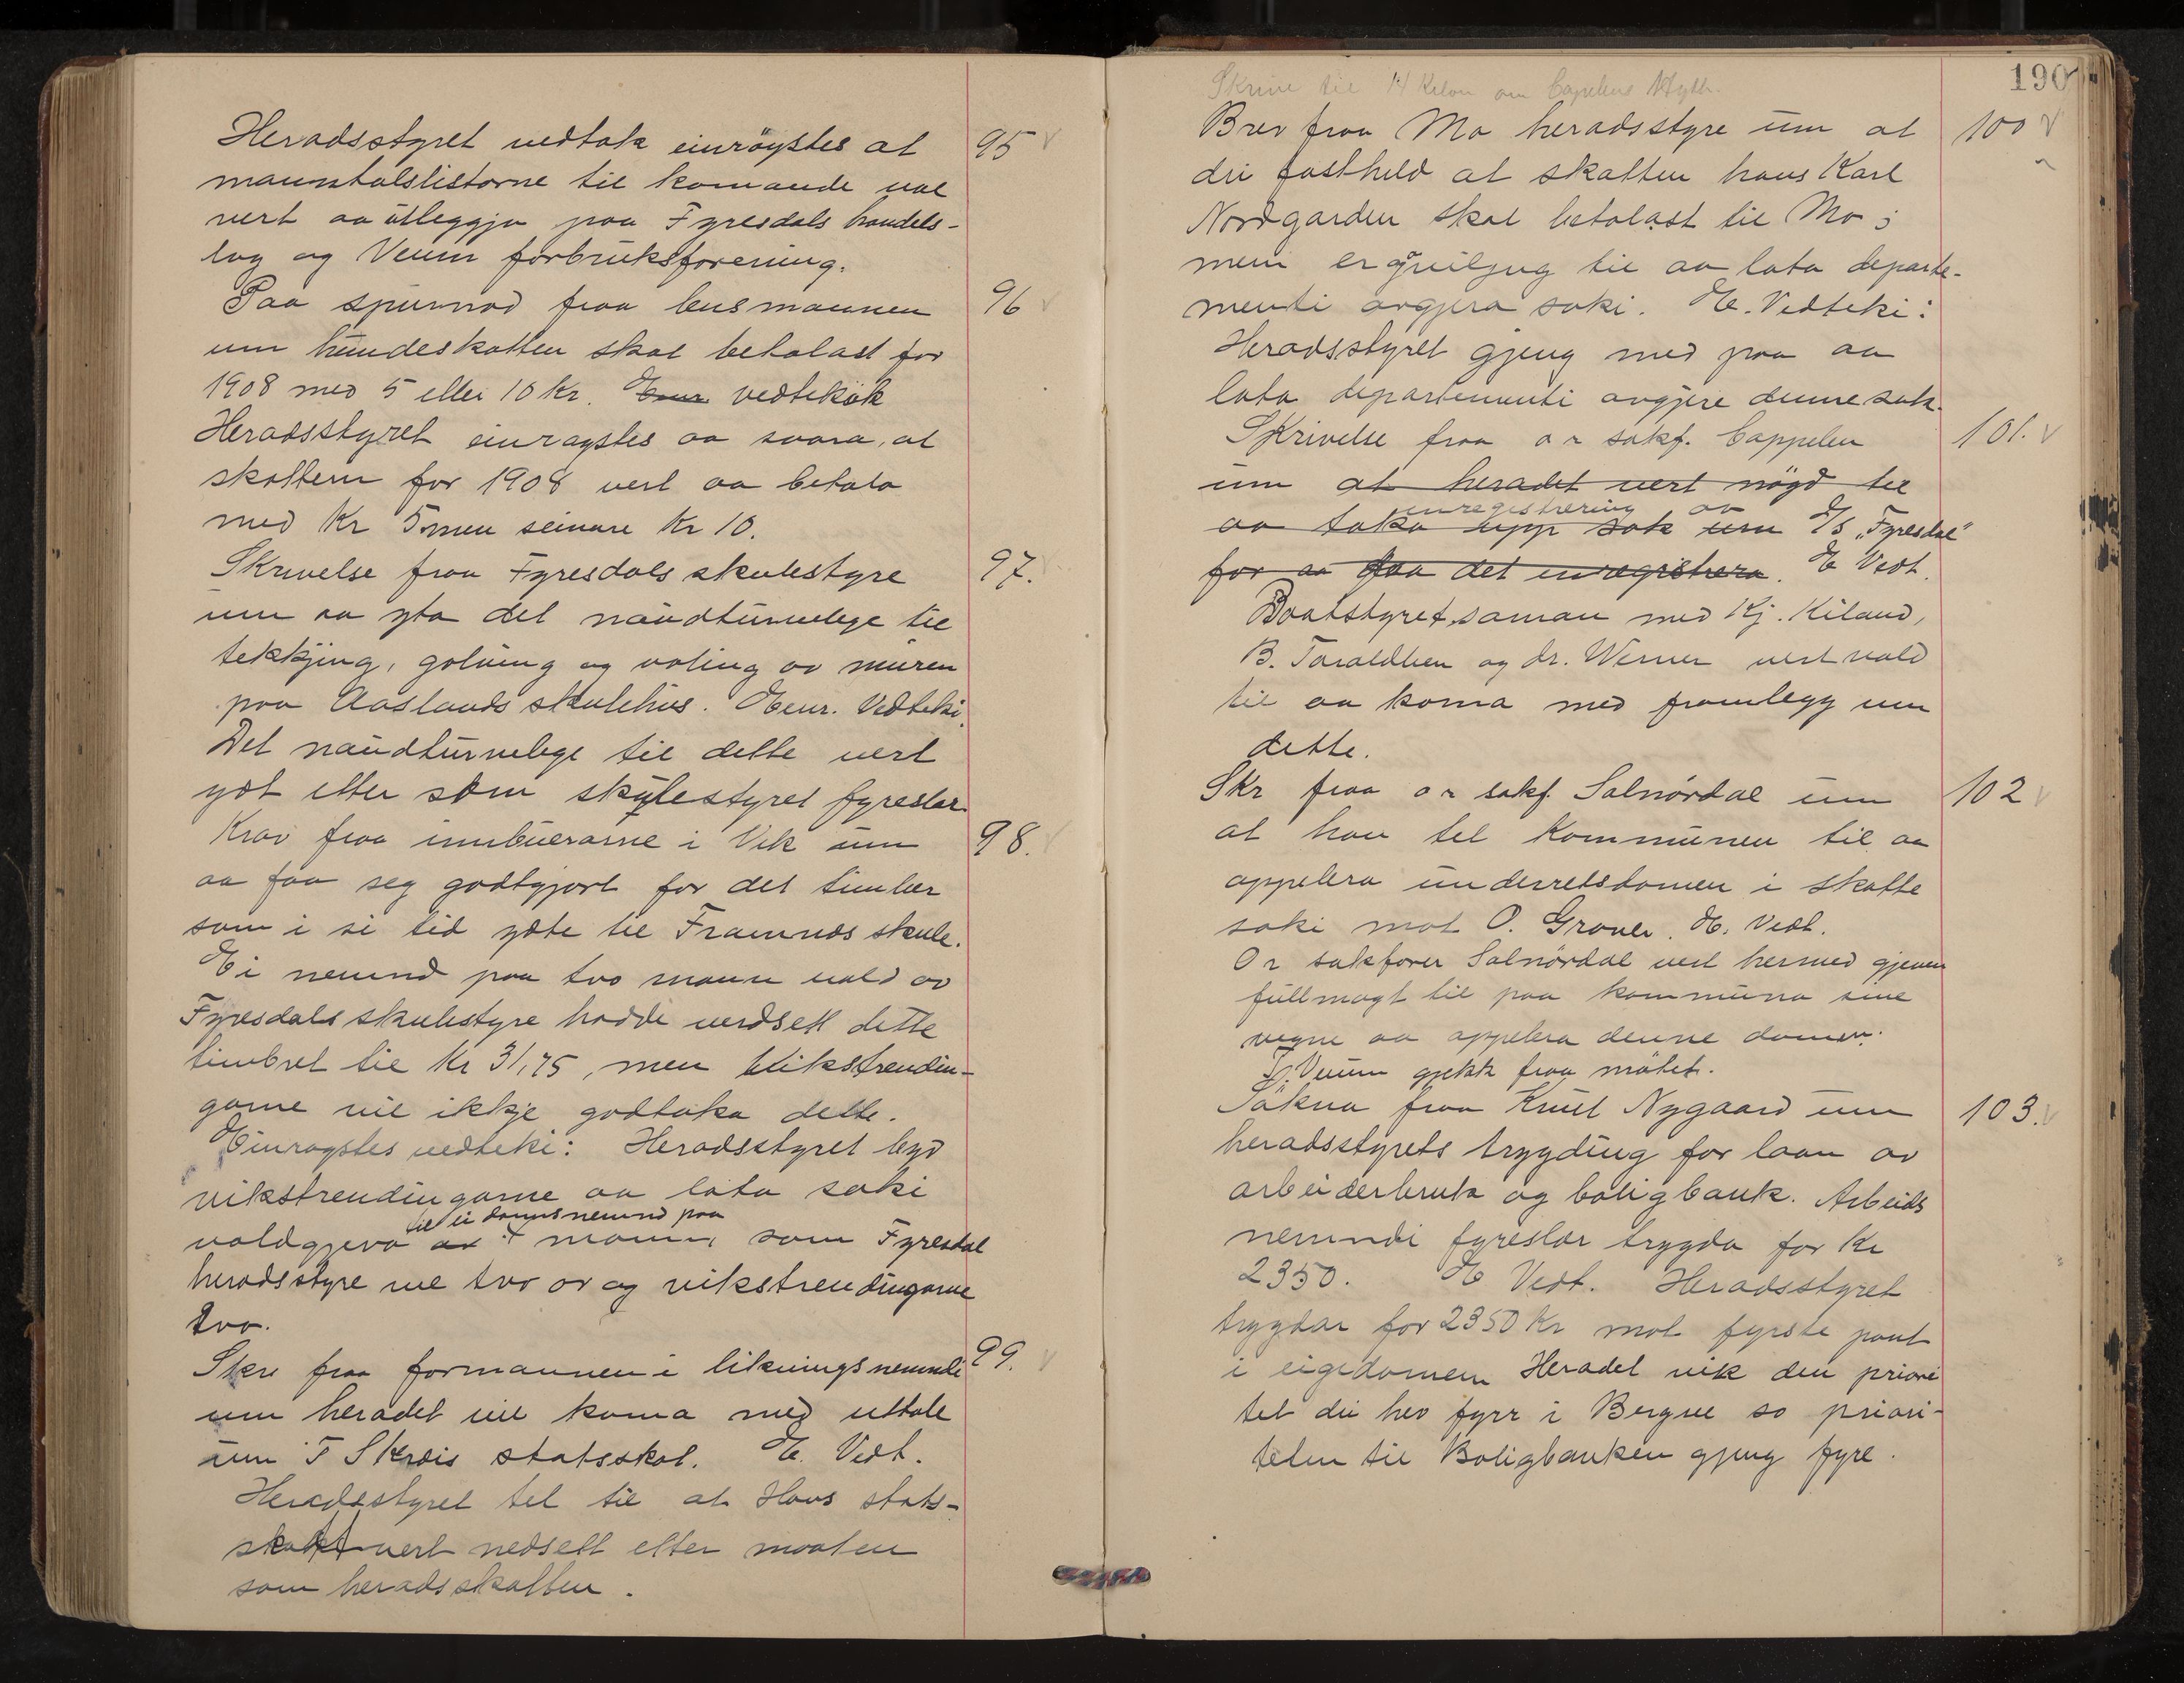 Heradsstyret vedtok einröystes at 95
manntalslistorne til komande val
vert aa utleggja paa Fyresdals handels-
lag og Veum forbruksforening.
Paa spurnad fraa lensmannen 96
um hundeskatten skal betalast for
1908 med 5 eller 10 Kr. vedtekök
Heradsstyret einragstes aa svara, at
skatten for 1908 vert aa betala
med Kr 5 men seinare Kr 10.
Skrivelse fraa Fyresdals skulestyre 97.
um aa yta det naudturvelege til
tekkjing, golving og maling av muren
paa Aaslands skulehus. Einr. Vedteki.
Det naudturvelege til dette vert
ydt etter som skulestyret fyreslær.
Krav fraa innbuerarne i Vik um 98.
aa faa seg godtgjort for det timber
som i si tid ydte til Framnæs skule.
Ei nemnd paa tvo mann vald av
Fyresdals skulestyre hadde verdsett dette
timbret til Kr 31,75, men Vikstrendin-
garne vil ikkje godtaka dette.
Einragstes vedteki: Heradsstyret byd
vikstrendingarne aa lata saki
til ei domsnemnd paa
valdgjeva av 4 mann, som Fyresdal
heradsstyre vel tvo av og vikstrendingarne
tvo.
Skri fraa formannen i likningsnemndi 99.
um heradet vil koma med uttale
um T Skreis statsskat. E. Vedt.
Heradsstyret tel til at Hans stats-
skatt vert nedsett etter maaten
som heradsskatten.
190
Skrive til om Cappelens
Brev fraa Mo heradsstyre um at 100
dei fastheld at skatten hans Karl
Nordgarden skal betalast til Mo;
men er og viljug til aa lata departe-
menti avgjera saki. E. Vedteki:
Heradsstyret gjeng med paa aa
lata departementi avgjere denne sak.
Skrivelse fraa o r sakf. Cappelen 101.
um at heradet vert nögd til
enregistrering av
aa taka upp sak um D/S „Fyresdal"
for aa faa det enregistrera. E Vedt.
Baatstyret saman med Kj. Kiland,
B. Taraldlien og dr. Werner vert vald
til aa koma med framlegg um
dette.
Skr fraa o r sakf. Solnördal um 102
at han tel kommunen til aa
appelera underretsdomen i skatte
saki mot O. Graver. E. Vedt.
O r sakförer Solnördal vert hermed gjeven
fullmagt til paa kommuna sine
vegne aa appelera denne domen.
T. Veum gjekk fraa mötet.
Sökna fraa Knut Nygaard um 103.
heradsstyrets trygding for laan av
arbeiderbruk og boligbank. Arbeids
nemndi fyreslær trygda for Kr
2350. E Vedt. Heradsstyret
trygdar for 2350 Kr mot fyrste pant
i eigedomen Heradet vik den priori
tet dei hev fyrr i Bergve so priori-
teten til Boligbanken gjeng fyre.